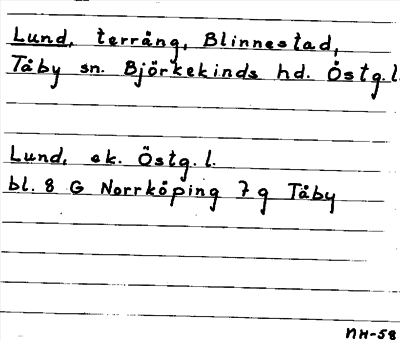 Lund, terräng, Blinnestad,
Tåby sn. Björkekinds hd. Östg.l.
Lund, ek. Östg.l.
bl. 8 G Norrköping 7 g Tåby
NH-58